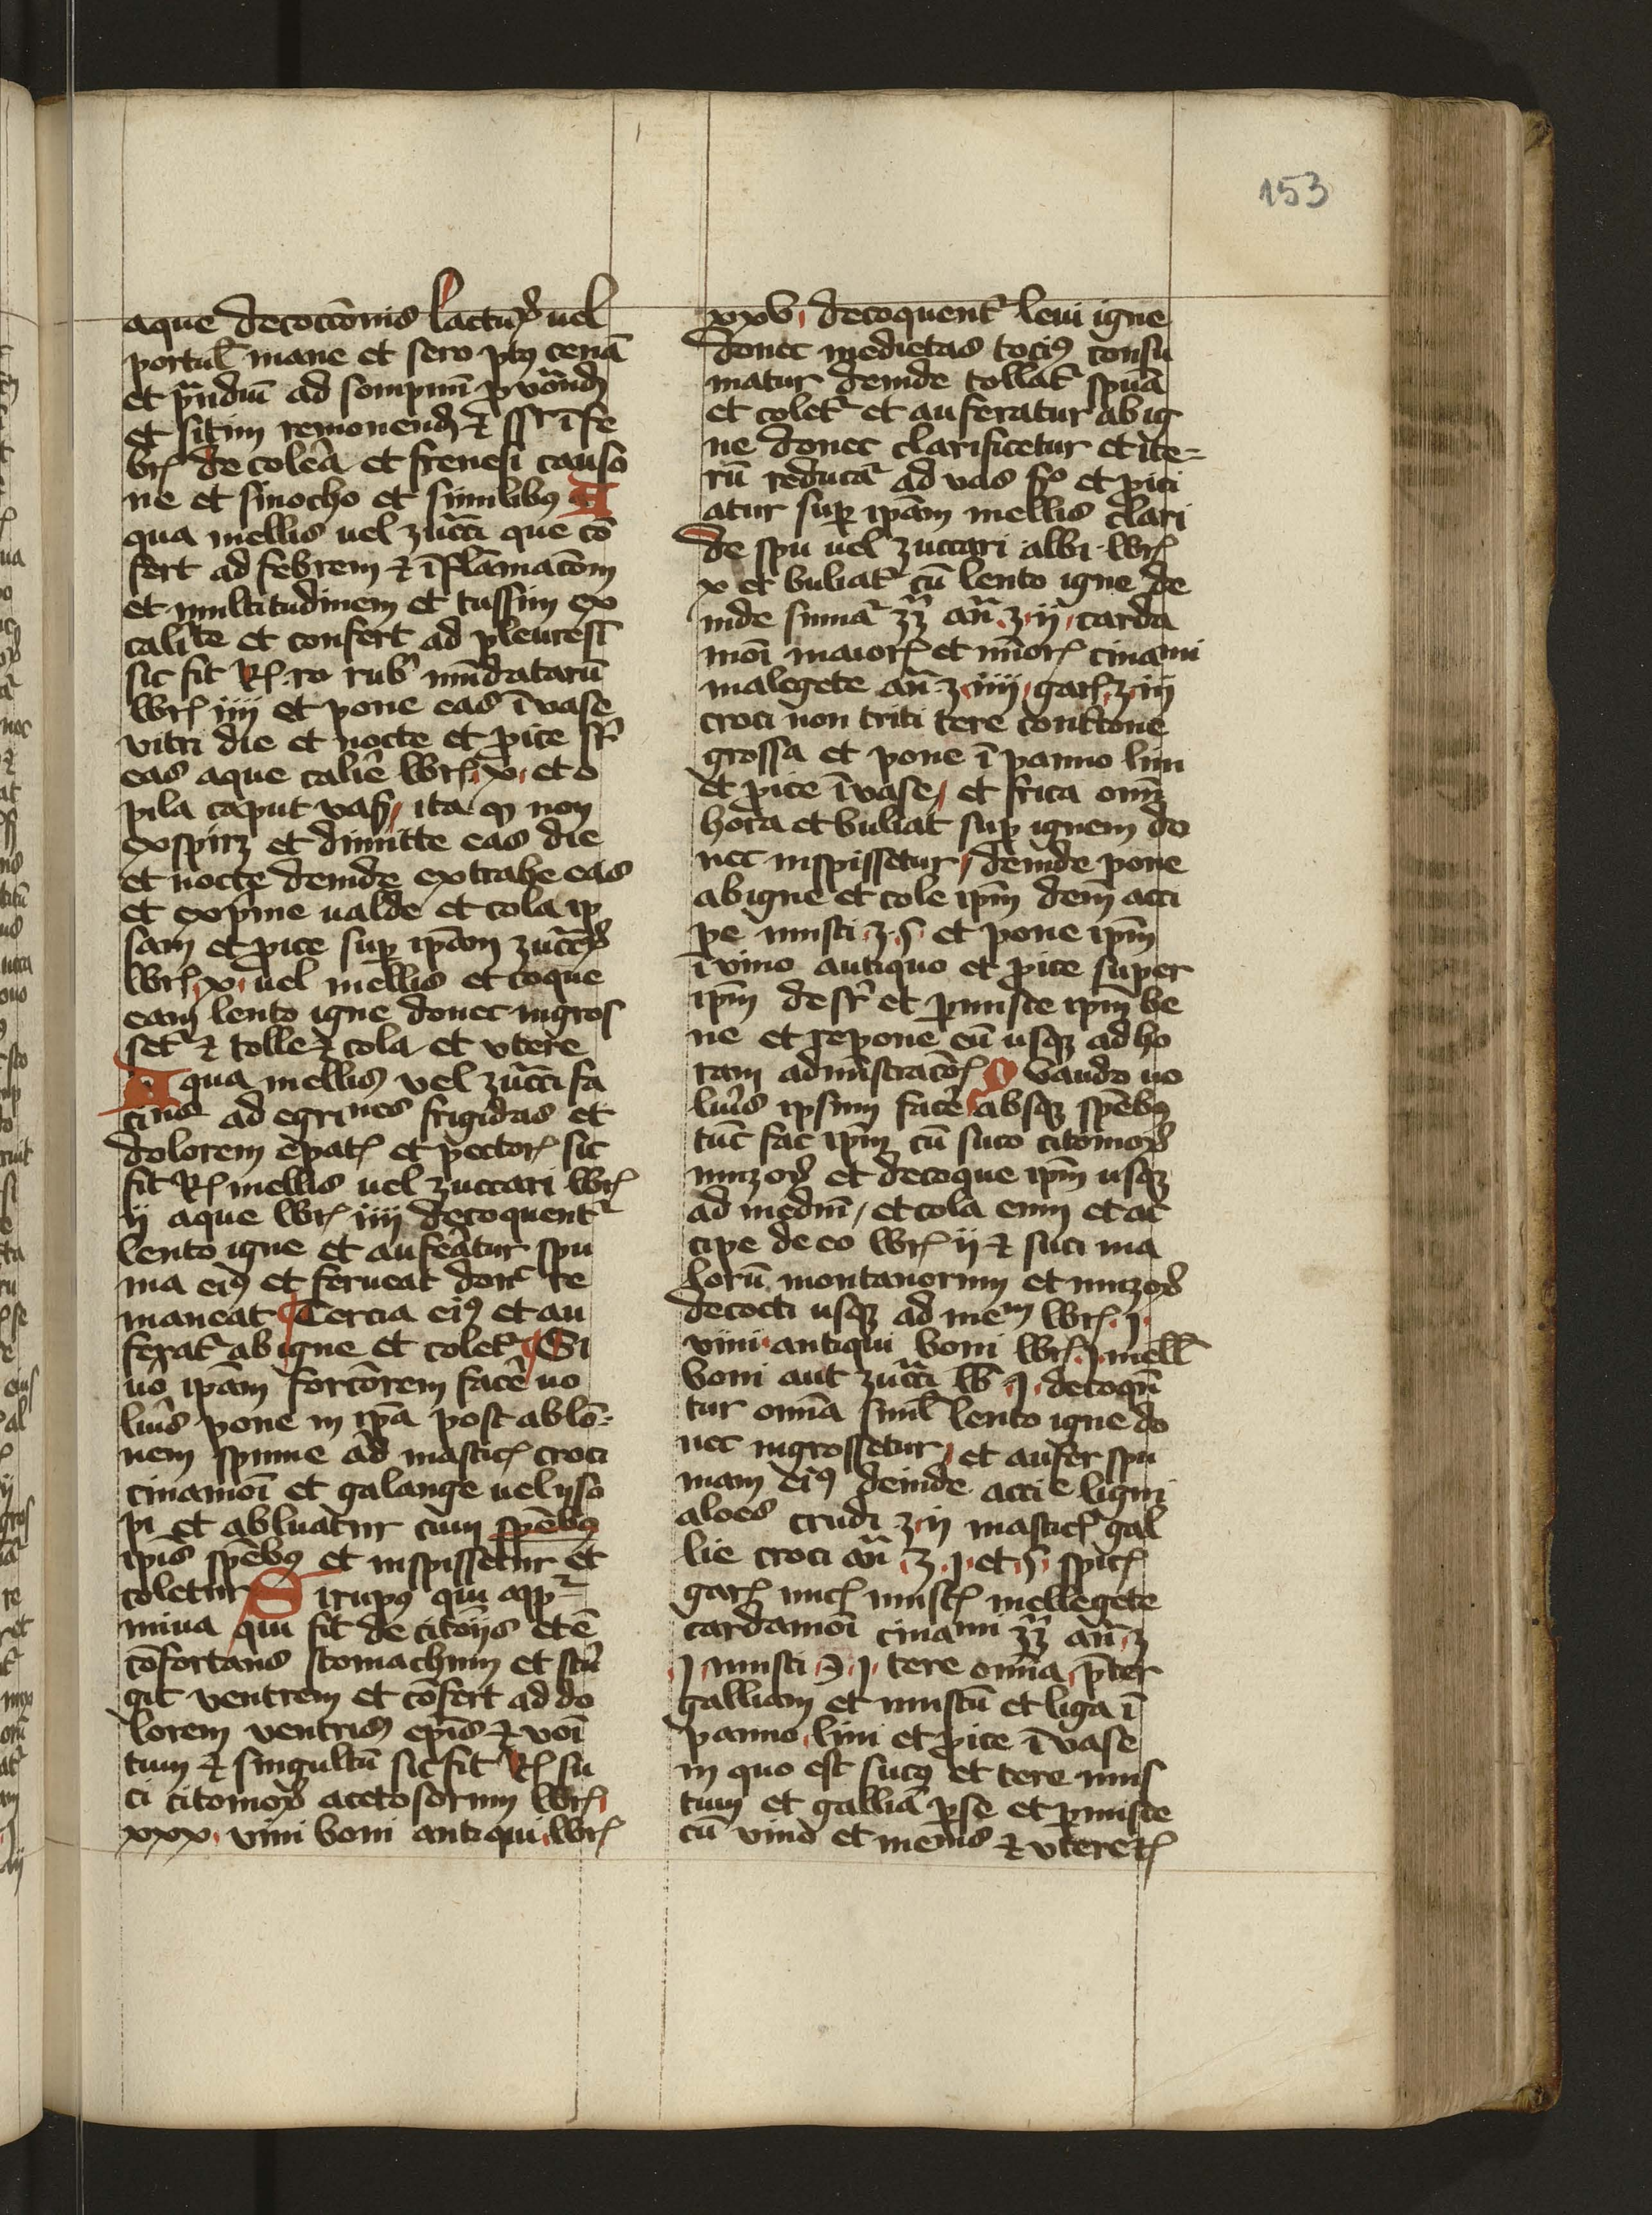 153
aque decoccōnis lactuꝝ uel
portul̄ mane et sero pꝰ cenā
et prandiū ad sompnū
et sitim remouend̄ ⁊ ī fe
brꝭ de colera et frenesi causo
ne et sinocho et similibꝰ A
qua mellis uel zuccari que cō
fert ad febrem ⁊ īflamacōm
et multitudinem et tussim ex
cali\te et confert ad pleuresī
sic fit Rꝭ ro rub mūdatarū
lbrꝭ iiii et pone eas ī vase
vitri die et nocte et proice sr̄
eas aque calid̄e lbrꝭ x et o
pila caput vasꝭ ita ꝙ non
expiret et dimitte eas die
et nocte deinde extrahe eas
et exprime ualde et cola ip
sam et proice suꝑ ipām zuccꝝ
lbrꝭ x uel mellis et coque
eam lento igne donec ingros
set̄ ⁊ tolle ⁊ cola et vtere
Aqua mellis vel zuccari fa
ciens ad egri\nes frigidas et
dolorem epatꝭ et pectorꝭ sic
fit Rꝭ mellis uel zuccari lbrꝭ
ii aque lbrꝭ iiii decoquent̄
lento igne et auferatur spu
ma eiꝰ et ferueat donc̄ re
maneat Tercia eiꝰ et au
ferat̄ ab igne et colet̄ Si
uō ipām forciorem facere uo
lueris pone in ipā post ablō
nem spume ad masticꝭ croci
cinamoī et galange uel yso
pi et abluatur cum spēbꝰ
ipīs spēbꝰ et inspissetur et
coletur Sirupꝰ qui app̄
miua qui fit de citoniis et ē
cōfortans stomachum et strin
git ventrem et cōfert ad do
lorem ventris epīs ⁊ vomi
tum ⁊ singultū sic fit Rꝭ su
ci citonioꝝ acetosorum lbrꝭ
xxx vini boni antiqui lbrꝭ
xxv decoquent̄ leui igne
donec medietas tociꝰ consu
matur deinde tollat̄ spuma
et colet̄ et auferatur ab ig
ne donec clarificetur et ite=
rū reducat̄ ad vas sr̄ et proici
atur suꝑ ipām mellis clari
de spu uel zuccari albi lbrꝭ
x et buliat̄ cū lento igne de
inde sumat̄ zz an̄ ʒ ii carda
moī maiorꝭ et mīorꝭ cinami
malegete an̄ ʒ iiii garꝭ ʒ iii
croci non triti tere contricone
grossa et pone ī panno lini
et proice ī vase et frica omī
hora et buliat suꝑ ignem do
nec inspissetur deinde pone
ab igne et cole ipm̄ dem̄ acci
pe musci ʒ s et pone ipm̄
ī vino antiquo et proice super
ipm̄ de sr̄ et permisce ipm̄ be
ne et repone eū usqꝫ ad ho
ram administracōꝭ Quando uo
lueris ipsum facere absqꝫ spēbꝰ
tūc fac ipm̄ cū suco citonioꝝ
muzoꝝ et decoque ipm̄ usqꝫ
ad mediū et cola eum et ac
cipe de eo lbrꝭ ii ⁊ suci ma
lorū montanorum et muzoꝝ
decocti usqꝫ ad mem̄ lbrꝭ j
vini antiqui boni lbrꝭ j mell̄
boni aut zuccari lb̄ j decoqn̄
tur omnia siml̄ lento igne do
nec ingrossetur et aufer spu
mam eiꝰ deinde accie ligni
aloes crudi ʒ ii masticꝭ gal
lie croci an̄ ʒ j et s spicꝭ
garꝭ nucꝭ muscꝭ mellegete
cardamoī cinami zz an̄ ʒ
j musci ℈ j tere omnia preter
galliam et muscū et liga ī
panno lini et proice ī vase
in quo est sucꝰ et tere mus
cum et galliā per se et permisce
cū vino et ⁊ vtere